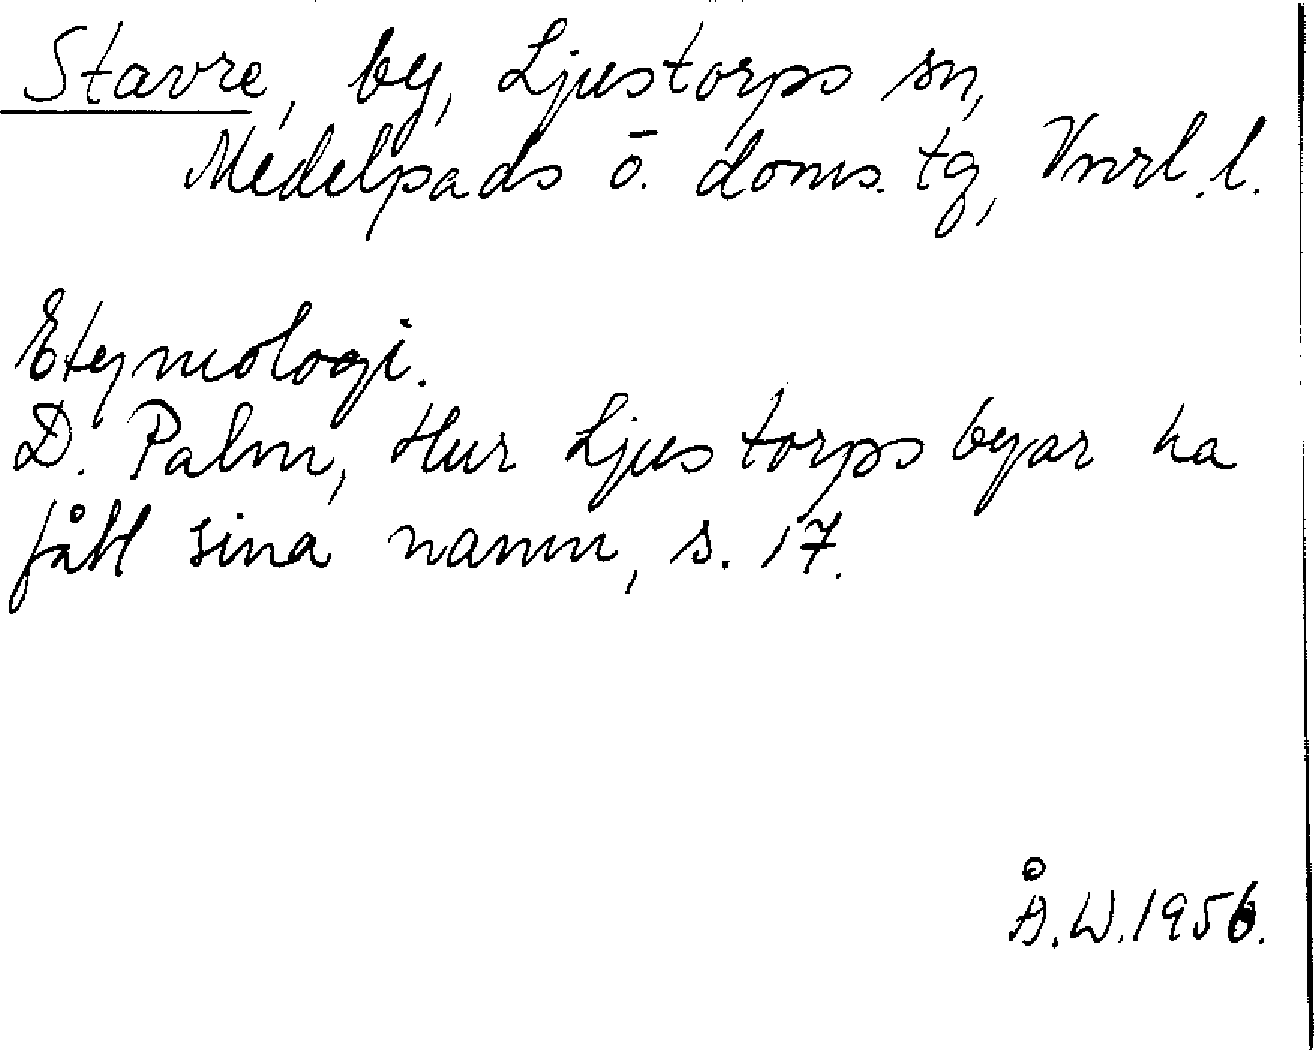 Stavre, by, Ljustorps sn,
Medelpads ö. doms. tg, Vnrl. l.
Etymologi.
D. Palm, Hur Ljustorps byar ha
fått sina namn, s. 17.
Å.W.1956.